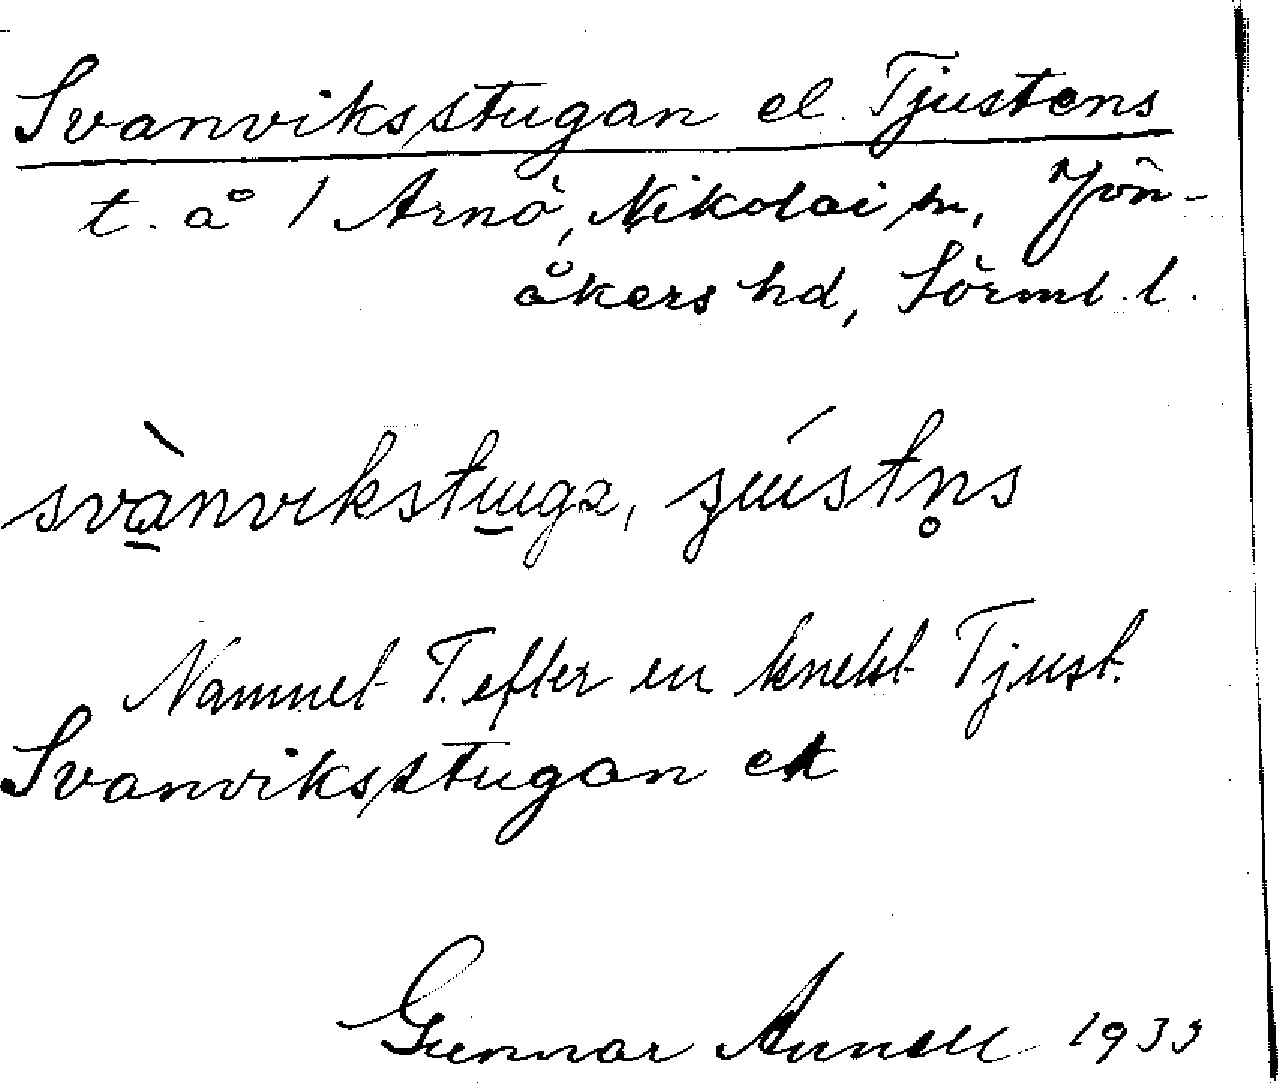 Svanviksstugan el. Tjustens
t. å 1 Arnö, Nikolai sn, Jön-
åkers hd, Sörml. l.
svànvikstuga, jústn̥s
Namnet T. efter en knekt Tjust.
Svanviksstugan
Gunnar 1933